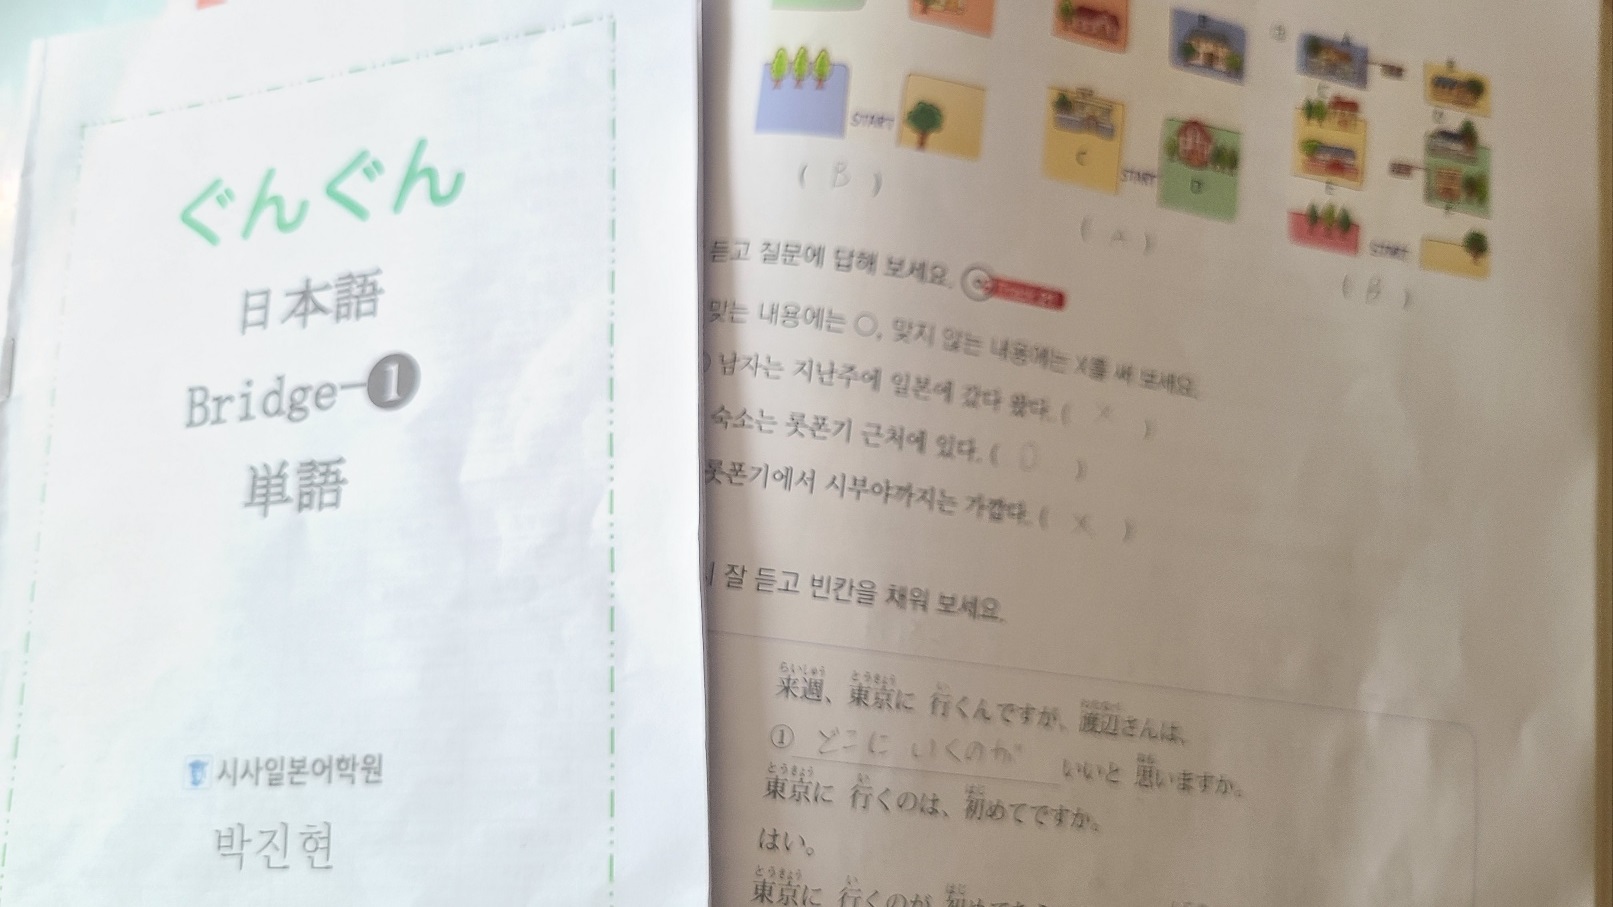 ぐんぐん
日本語
Bridge-❶
単語
시사일본어학원
박진현
START
( B )
C
START
( A )
A
START
( B )
듣고 질문에 답해 보세요.
맞는 내용에는 ○, 맞지 않는 내용에는 X를 써 보세요.
남자는 지난주에 일본에 갔다 왔다. ( × )
숙소는 롯폰기 근처에 있다. ( O )
롯폰기에서 시부야까지는 가깝다. ( × )
잘 듣고 빈칸을 채워 보세요.
来週、東京に 行くんですが、渡辺さんは、
① どこに いくのが いいと 思いますか。
東京に 行くのは、初めてですか。
はい。
東京に 行くのが